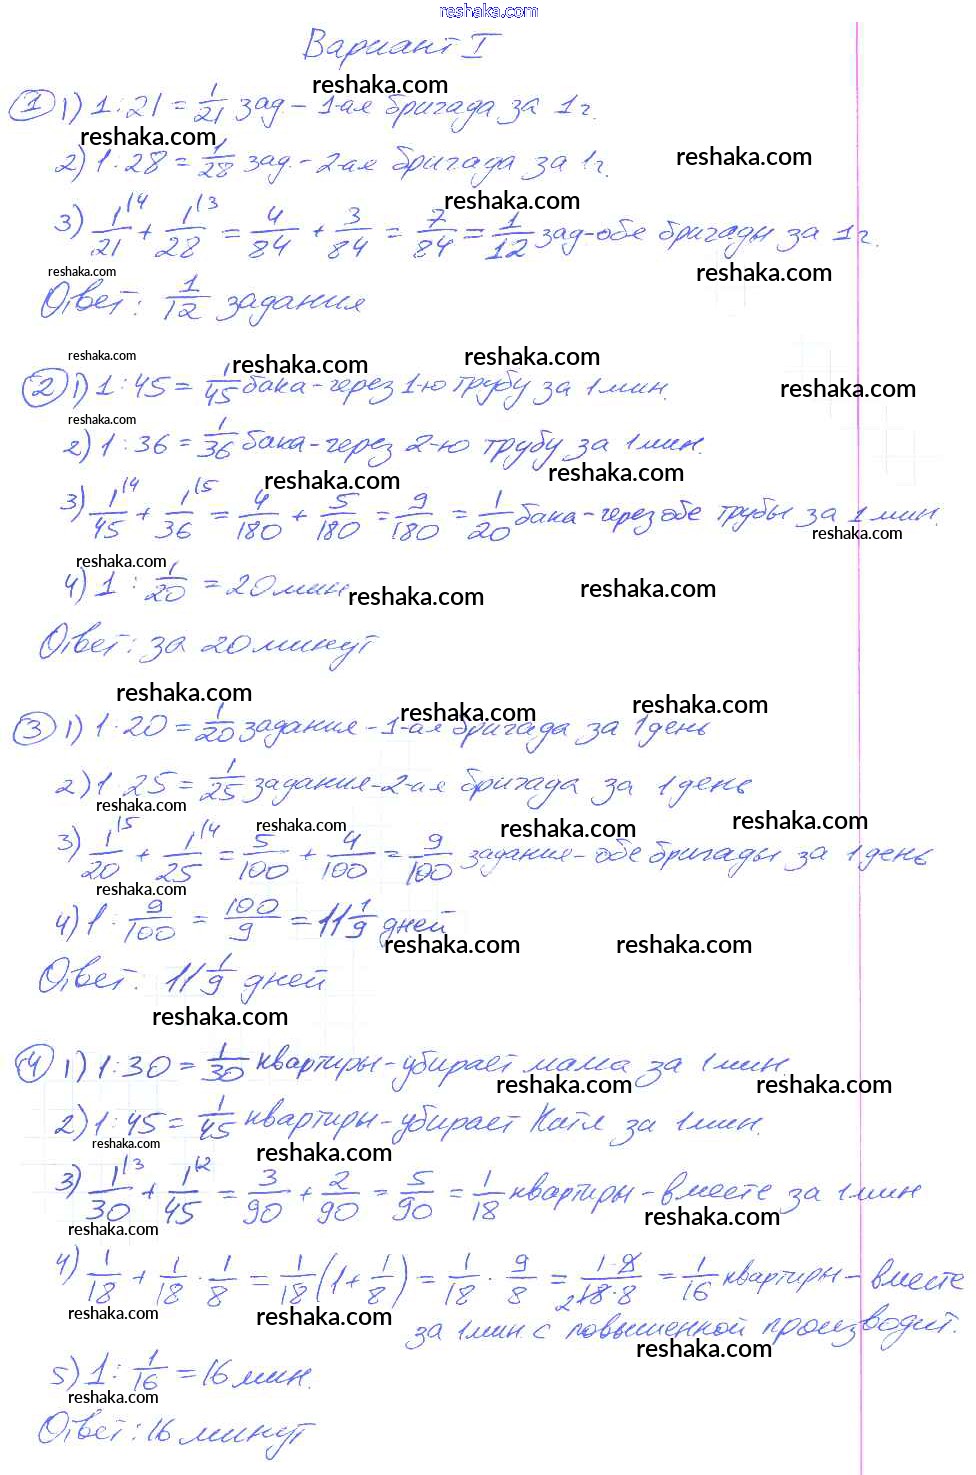 reshaka.com
Вариант I
reshaka.com
① 1) 1:21 = 1/21 зад. - 1-ая бригада за 1ч.
reshaka.com
2) 1:28 = 1/28 зад. - 2-ая бригада за 1ч.
reshaka.com
reshaka.com
3) 1/21 \4 + 1/28 \3 = 4/84 + 3/84 = 7/84 = 1/12 зад - обе бригады за 1ч.
reshaka.com
reshaka.com
Ответ: 1/12 задания
reshaka.com
reshaka.com
reshaka.com
② 1) 1:45 = 1/45 бака - через 1-ю трубу за 1 мин.
reshaka.com
reshaka.com
2) 1:36 = 1/36 бака - через 2-ю трубу за 1 мин.
reshaka.com
reshaka.com
3) 1/45 \4 + 1/36 \5 = 4/180 + 5/180 = 9/180 = 1/20 бака - через обе трубы за 1 мин.
reshaka.com
reshaka.com
4) 1 : 1/20 = 20 мин
reshaka.com
reshaka.com
Ответ: за 20 минут
reshaka.com
reshaka.com
reshaka.com
③ 1) 1:20 = 1/20 задания - 1-ая бригада за 1 день
2) 1:25 = 1/25 задания - 2-ая бригада за 1 день
reshaka.com
reshaka.com
reshaka.com
reshaka.com
3) 1/20 \5 + 1/25 \4 = 5/100 + 4/100 = 9/100 задания - обе бригады за 1 день
reshaka.com
4) 1 : 9/100 = 100/9 = 11 1/9 дней
reshaka.com
reshaka.com
Ответ: 11 1/9 дней
reshaka.com
④ 1) 1:30 = 1/30 квартиры - убирает мама за 1 мин.
reshaka.com
reshaka.com
2) 1:45 = 1/45 квартиры - убирает Катя за 1 мин.
reshaka.com
reshaka.com
3) 1/30 \3 + 1/45 \2 = 3/90 + 2/90 = 5/90 = 1/18 квартиры - вместе за 1 мин
reshaka.com
reshaka.com
4) 1/18 + 1/18 · 1/8 = 1/18 (1 + 1/8) = 1/18 · 9/8 = 1·9/18·8 = 1/16 квартиры - вместе
reshaka.com
reshaka.com
за 1 мин. с повышенной производит.
reshaka.com
5) 1 : 1/16 = 16 мин.
reshaka.com
Ответ: 16 минут